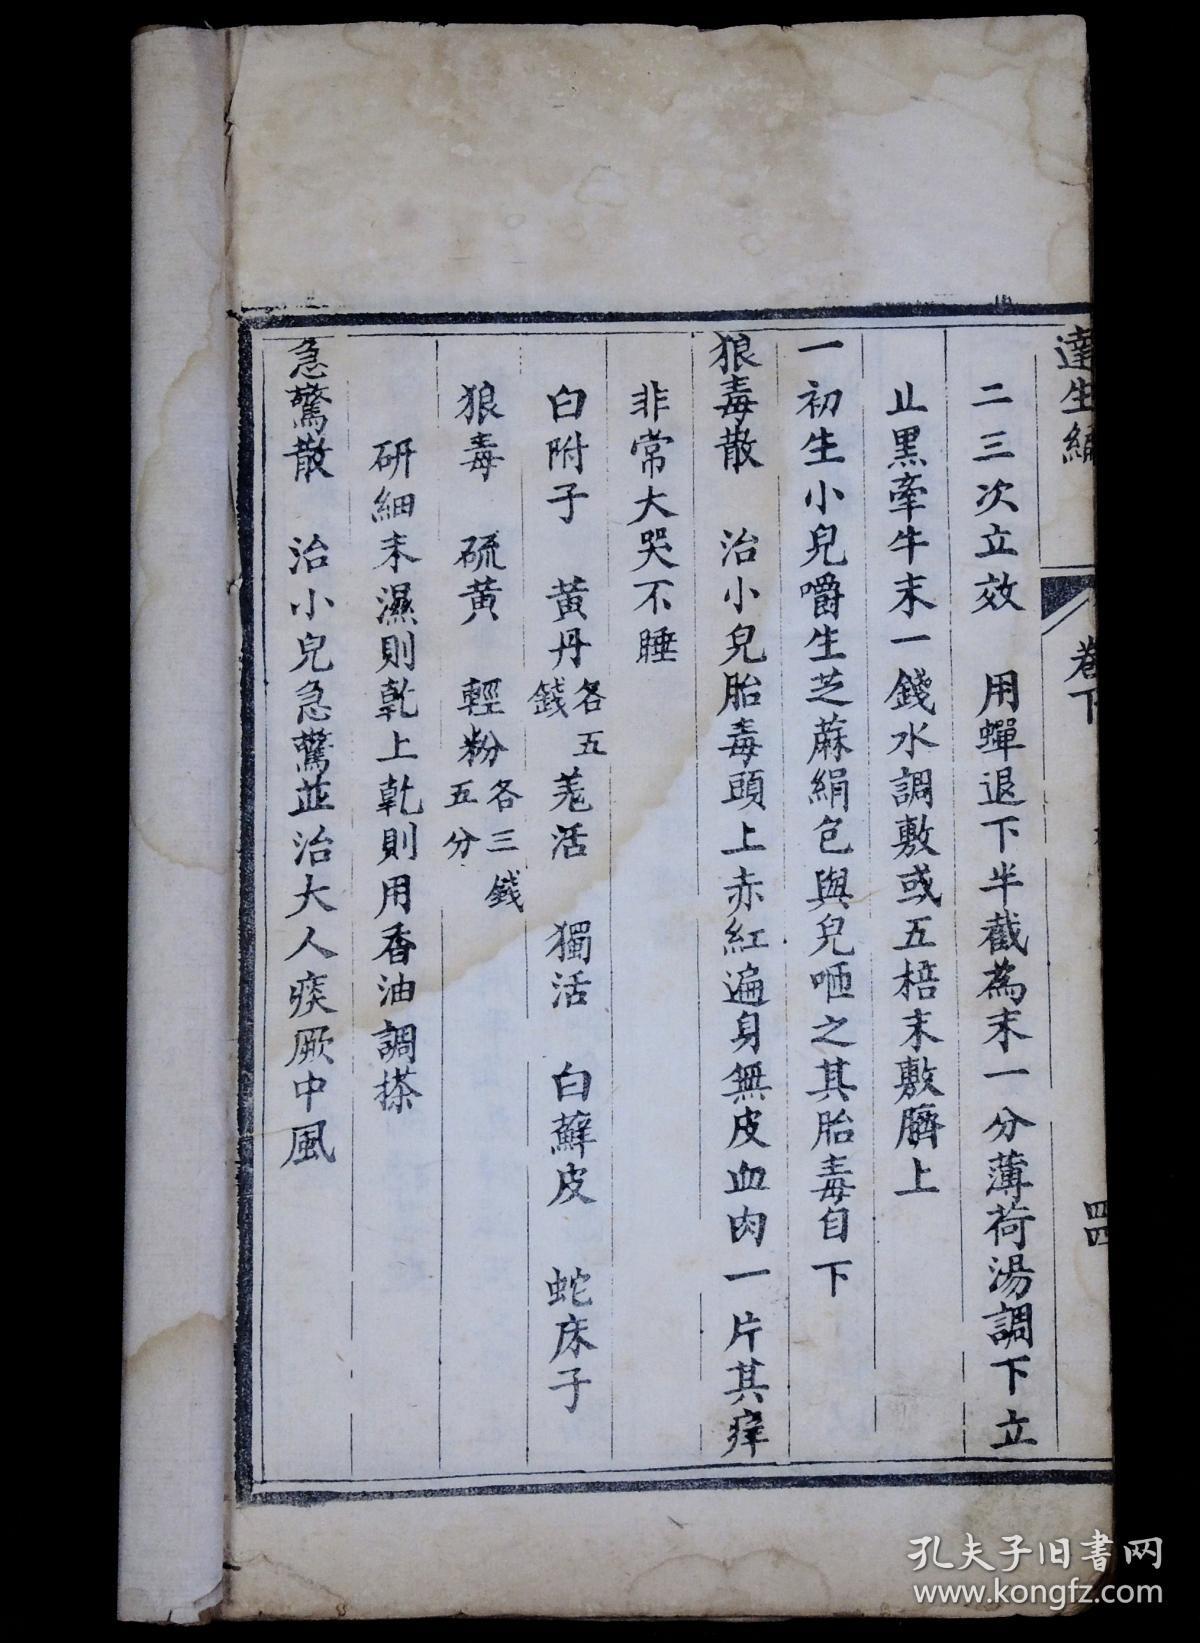 達生編
卷下
四四
二三次立效　用蟬退下半截為末一分薄荷湯調下立
止黑牽牛末一錢水調敷或五棓末敷臍上
一初生小兒嚼生芝蔴絹包與兒咂之其胎毒自下
狼毒散　治小兒胎毒頭上赤紅遍身無皮血肉一片其痒
非常大哭不睡
白附子　黃丹各五錢　羌活　獨活　白蘚皮　蛇床子
狼毒　硫黃　輕粉各三錢五分
研細末濕則乾上乾則用香油調搽
急驚散　治小兒急驚並治大人痰厥中風
孔夫子旧書网
www.kongfz.com